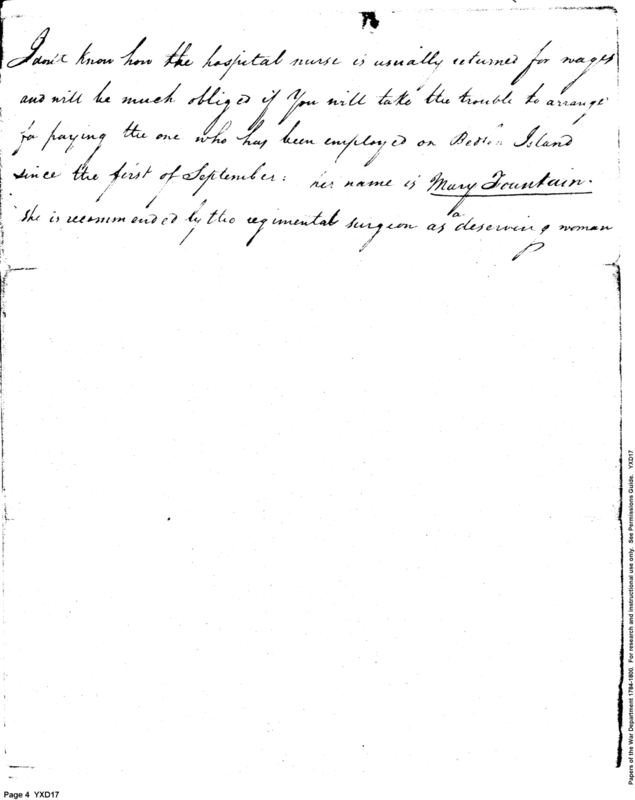 I don't know how the hospital nurse is usually returned for wages
and will be much obliged if You will take the trouble to arrange
for paying the one who has been employed on Island
since the first of September: her name is Mary Fountain.
She is recommended by the regimental surgeon as a deserving woman
Page 4 YXD17
Papers of the War Department 1784-1800. For research and instructional use only. See Permissions Guide. YXD17